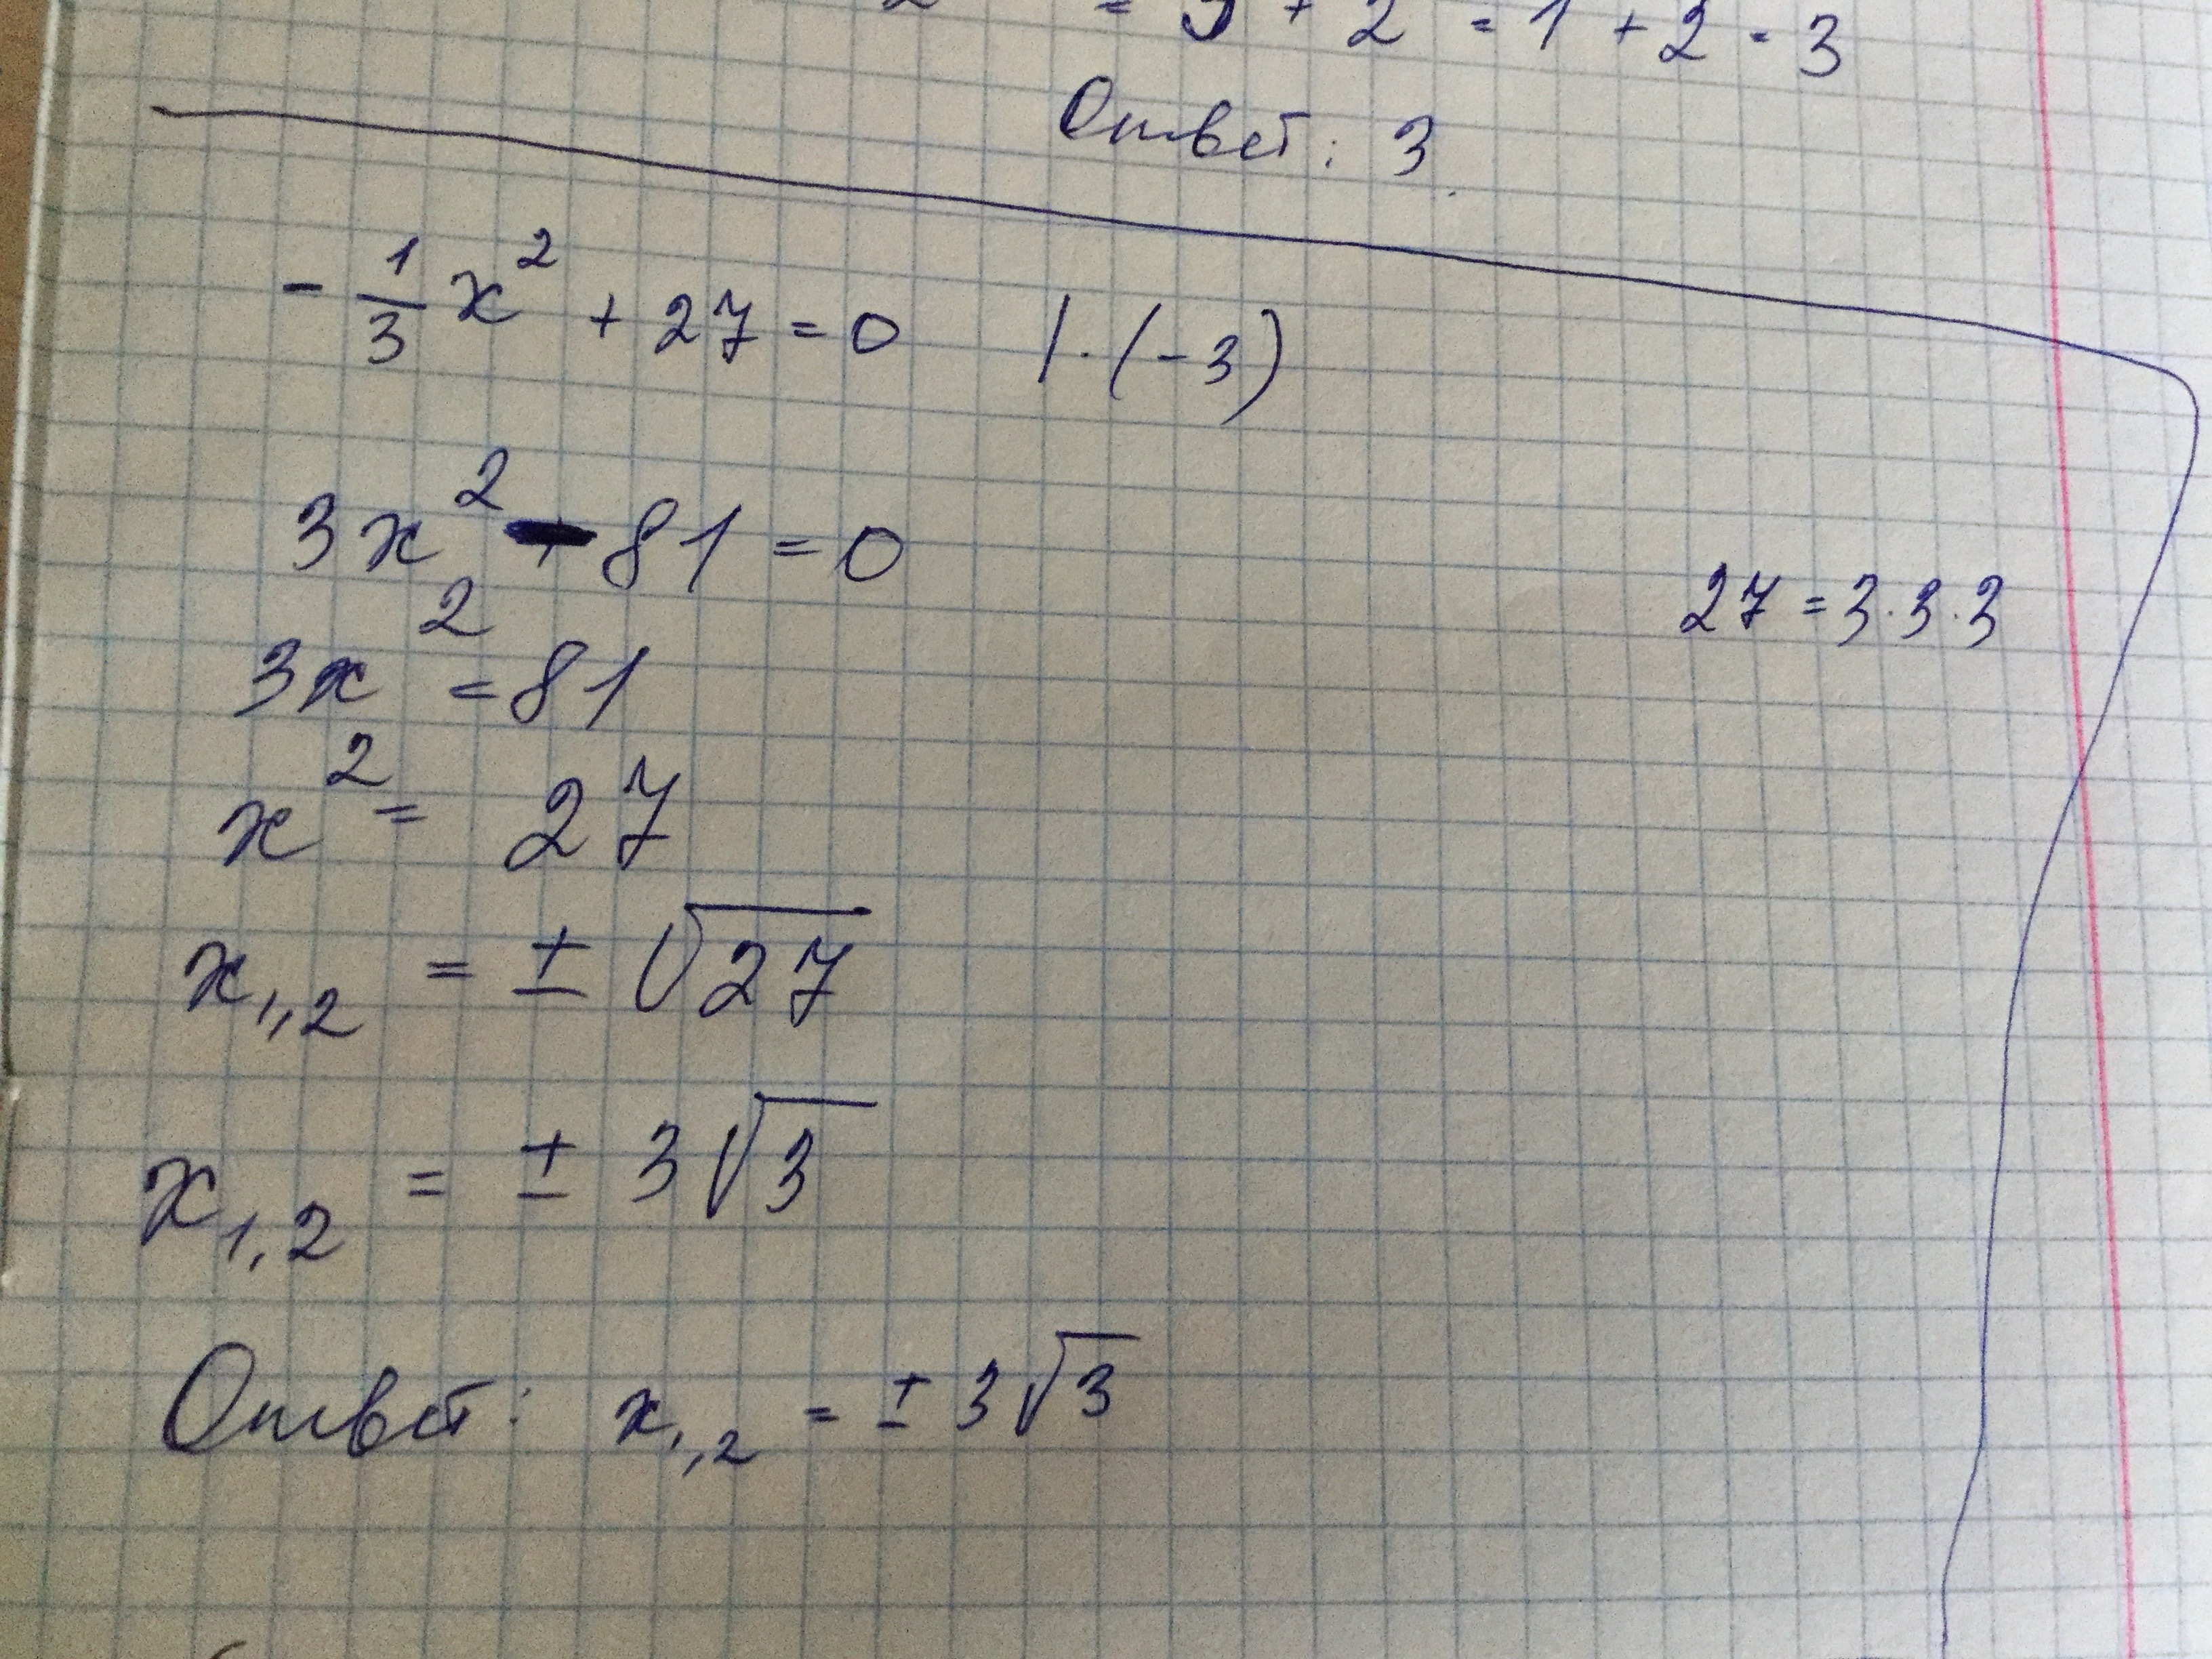 = 1 + 2 = 3
Ответ: 3.
- 1/3 x² + 27 = 0 | · (-3)
3x² - 81 = 0
27 = 3·3·3
3x² = 81
x² = 27
x₁,₂ = ± √27
x₁,₂ = ± 3√3
Ответ: x₁,₂ = ± 3√3